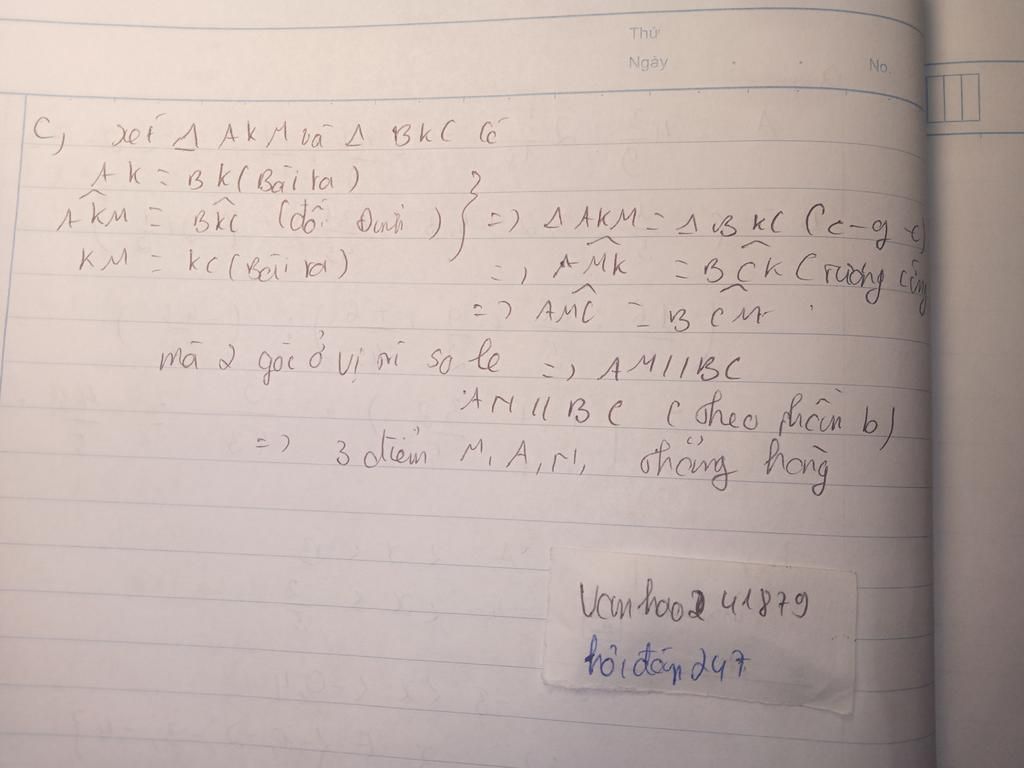 Thứ
Ngày
No.
C, xét Δ AKM và Δ BKC Có
AK = BK (Bài ra)
AKM = BKC (đối đỉnh) } => Δ AKM = Δ BKC (c-g-c)
KM = KC (Bài ra) => AMK = BCK (tương ứng
=> AMC = BCM
mà 2 góc ở vị trí so le => AM//BC
AN//BC (theo phần b)
=> 3 điểm M, A, N, thẳng hàng
Vanhoo2 41879
hỏi đáp 247